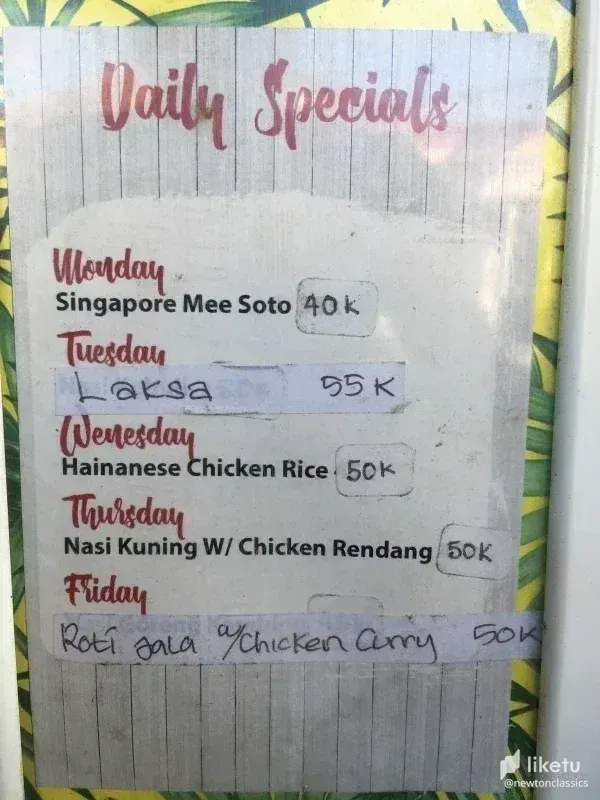 Daily Specials
Monday
Singapore Mee Soto 40K
Tuesday
Laksa 55K
Wenesday
Hainanese Chicken Rice 50K
Thursday
Nasi Kuning W/ Chicken Rendang 50K
Friday
Roti Jala w/Chicken Curry 50K
liketu
@newtonclassics